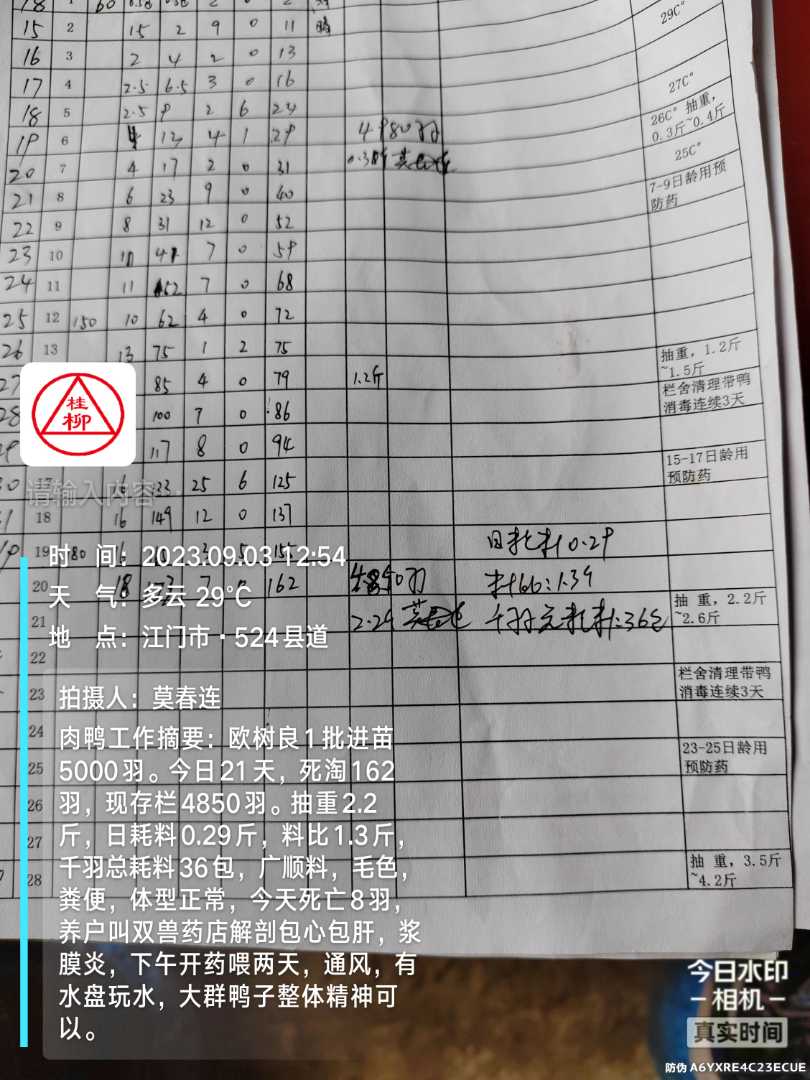 15 2 15 2 9 0 11
29C°
16 3 2 4 2 0 13
17 4 2.5 6.5 3 0 16
27C°
18 5 2.5 9 2 6 24
26C° 抽重，
0.3斤~0.4斤
19 6 4 12 4 1 29 4980羽
25C°
20 7 4 17 2 0 31 0.3斤
7-9日龄用预
防药
21 8 6 23 9 0 40
22 9 8 31 12 0 52
23 10 10 41 7 0 59
24 11 11 52 7 0 68
25 12 150 10 62 4 0 72
26 13 13 75 1 2 75
抽重，1.2斤
~1.5斤
27 85 4 0 79 1.2斤
栏舍清理带鸭
消毒连续3天
28 100 7 0 86
117 8 0 94
15-17日龄用
预防药
17 16 133 25 6 125
18 16 149 12 0 137
19 日耗料0.29
20 18 7 0 162 料比:1.3斤
21 2.2斤 莫春连 千羽元耗料:36包
抽 重，2.2斤
~2.6斤
22
23
栏舍清理带鸭
消毒连续3天
24
25
23-25日龄用
预防药
26
27
28
抽 重，3.5斤
~4.2斤
桂
柳
请输入内容
时 间：2023.09.03 12:54
天 气：多云 29℃
地 点：江门市·524县道
拍摄人：莫春连
肉鸭工作摘要：欧树良1批进苗
5000羽。今日21天，死淘162
羽，现存栏4850羽。抽重2.2
斤，日耗料0.29斤，料比1.3斤，
千羽总耗料36包，广顺料，毛色，
粪便，体型正常，今天死亡8羽，
养户叫双兽药店解剖包心包肝，浆
膜炎，下午开药喂两天，通风，有
水盘玩水，大群鸭子整体精神可
以。
今日水印
相机
真实时间
防伪 A6YXRE4C23ECUE